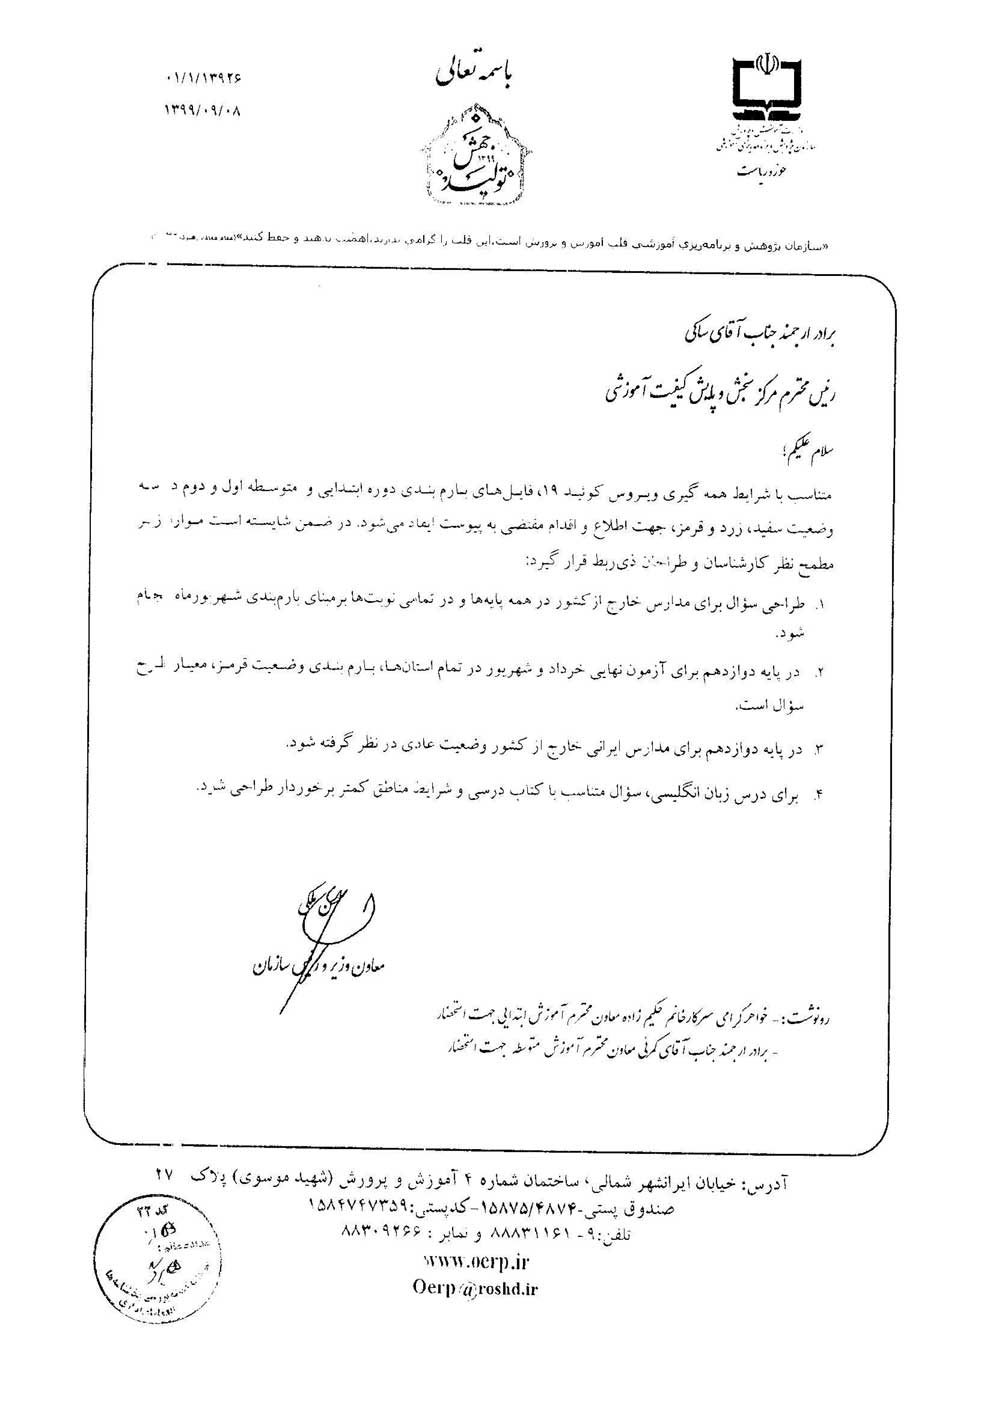 باسمه تعالی
۰۱/۱/۱۳۹۲۶
۱۳۹۹/۰۹/۰۸
جهش تولید ۱۳۹۹
وزارت آموزش و پرورش
سازمان پژوهش و برنامه‌ریزی آموزشی
حوزه ریاست
«سازمان پژوهش و برنامه‌ریزی آموزشی قلب آموزش و پرورش است.این قلب را گرامی بدارید،اهمیت بدهید و حفظ کنید»
برادر ارجمند جناب آقای ساکی
رئیس محترم مرکز سنجش و پایش کیفیت آموزشی
سلام علیکم؛
متناسب با شرایط همه گیری ویروس کوئید ۱۹، فایل‌های بارم بندی دوره ابتدایی و متوسطه اول و دوم در سه
وضعیت سفید، زرد و قرمز، جهت اطلاع و اقدام مقتضی به پیوست ایفاد می‌شود. در ضمن شایسته است موارد زیر
مطمح نظر کارشناسان و طراحان ذی‌ربط قرار گیرد:
۱. طراحی سؤال برای مدارس خارج از کشور در همه پایه‌ها و در تمامی نوبت‌ها برمبنای بارم‌بندی شهریورماه انجام
شود.
۲. در پایه دوازدهم برای آزمون نهایی خرداد و شهریور در تمام استان‌ها، بارم بندی وضعیت قرمز، معیار طرح
سؤال است.
۳. در پایه دوازدهم برای مدارس ایرانی خارج از کشور وضعیت عادی در نظر گرفته شود.
۴. برای درس زبان انگلیسی، سؤال متناسب با کتاب درسی و شرایط مناطق کمتر برخوردار طراحی شود.
معاون وزیر و رئیس سازمان
رونوشت: - خواهر گرامی سرکار خانم حکیم زاده معاون محترم آموزش ابتدایی جهت استحضار
- برادر ارجمند جناب آقای کمرئی معاون محترم آموزش متوسطه جهت استحضار
آدرس: خیابان ایرانشهر شمالی، ساختمان شماره ۴ آموزش و پرورش (شهید موسوی) پلاک ۲۷
صندوق پستی-۱۵۸۷۵/۴۸۷۴-کدپستی:۱۵۸۴۷۴۷۳۵۹
تلفن:۹- ۸۸۸۳۱۱۶۱ و نمابر : ۸۸۳۰۹۲۶۶
www.oerp.ir
Oerp@roshd.ir
کد ۲۲